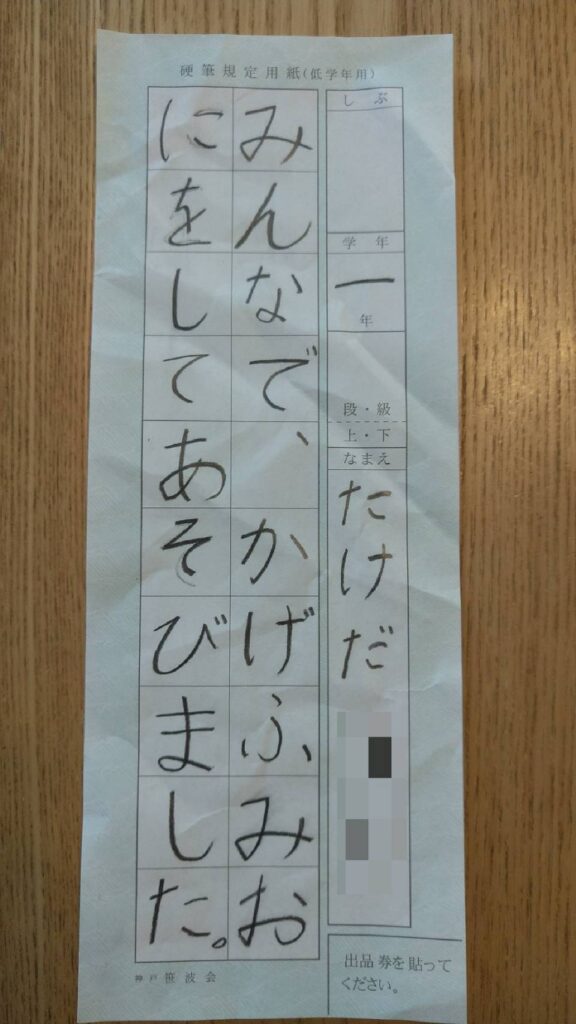 硬筆規定用紙(低学年用)
しぶ
学年
一
年
段・級
上・下
なまえ
たけだ
みんなで、かげふみお
にをしてあそびました。
出品券を貼って
ください。
神戸笹波会